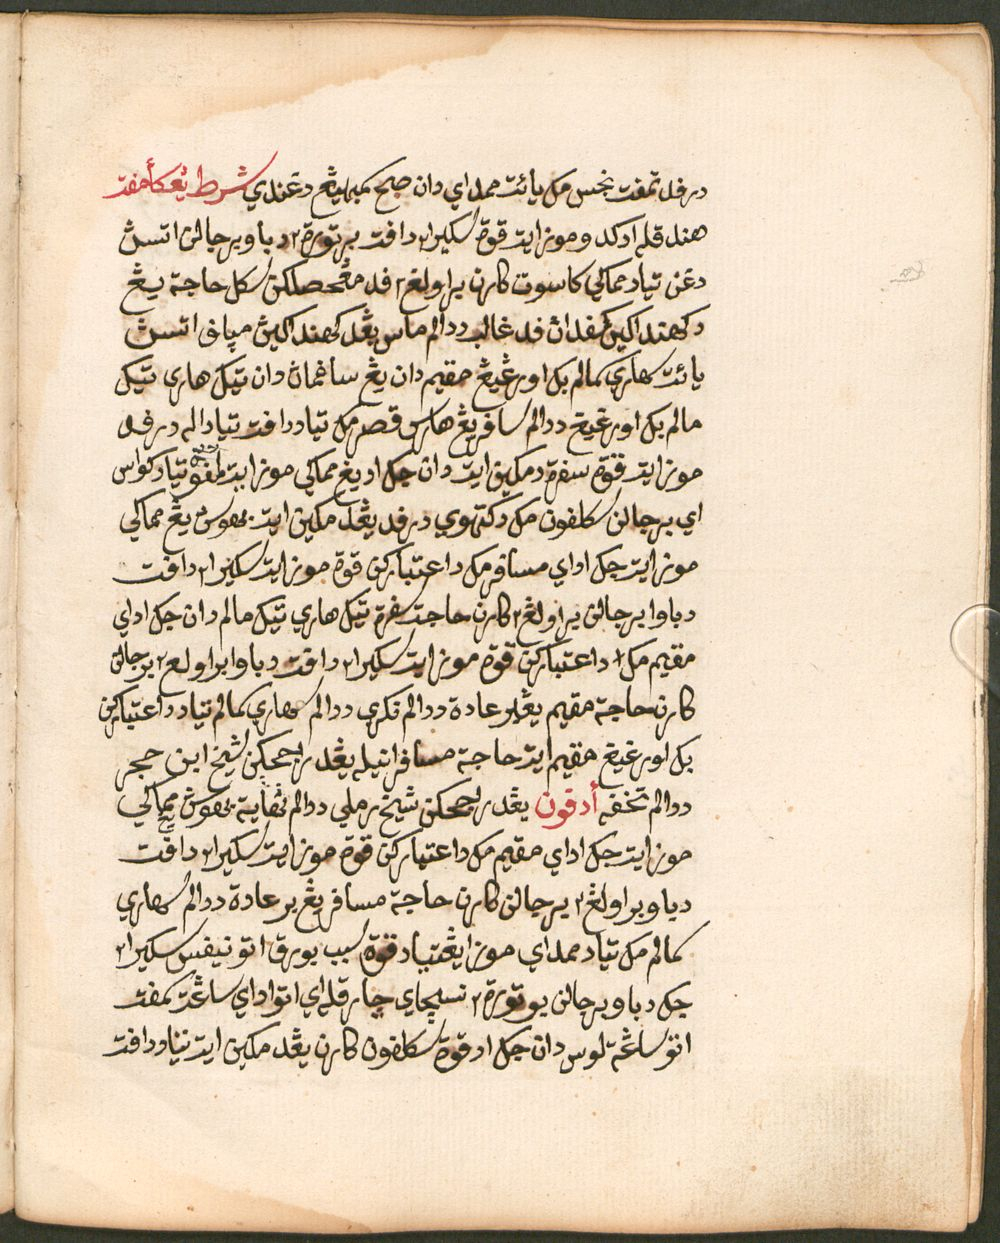 درفد تمفت نجس مک يائت ممداي دان صح کمبليڽ دغندي شرط يغکأمفت
هندقله ادکدو موزايت قوة سکير٢ دافت برتورة٢ دباو برجالن اتسڽ
دغن تياد مماکي کاسوت کارن براولغ٢ فد مڠحصلکن سکل حاجة يڠ
دکهنداکيڽ کفدان فد غالب ددالم ماس يڠد کهنداکيڽ مپاڤ اتسڽ
يائت سهاري سمالم بک اورڠيڠ مقيم دان يڠ سأغمان دان تيک هاري تيک
مالم بک اورغيڠ ددالم سافر يڠ هارس قصر مک تياد دافت تياداله درفد
موزايت قوة سفرة دمکين ايت دان جک اديڠ مماکي موزايت ايت تياد کواس
اي برجالن سکلفون مک دکتهوي درفد يڠد مکين ايت بهوس يڠ مماکي
موزايت جک اداي مسافر مک داعتبارکن قوة موزايت سکير٢ دافت
دباوا برجالن براولڠ٢ کارن حاجت سفرة تيک هاري تيک مالم دان جک اداي
مقيم مک داعتبارکن قوة موزايت سکير٢ دافت دباوا براولڠ٢ برجالن
کارن حاجة مقيم يڠبر عادة ددالم نکري ددالم سهاري سمالم تياد داعتبارکن
بک اورغيڠ مقيم ايت حاجة مسافر انيله يڠد رجحکن شيخ ابن حجر
ددالم تحفه أدفون يڠد رجحکن شيخ رملي ددالم نهاية بهوس مماکي
موزايت جک اداي مقيم مک داعتبارکن قوة موزايت سکير٢ دافت
دباو براولڠ٢ برجالن کارن حاجة مسافر يڠ بر عادة ددالم سهاري
سمالم مک تياد ممداي موزا يڠتياد قوة سبب بورق اتو نيفس سکير٢
جک دباو برجالن برتورة٢ نسچاي چارقله اي اتوا داي ساڠت سمفت
اتو ساڠة لوس دان جک اد قوة سکلفون کارن يڠد مکين ايت تياد دافت